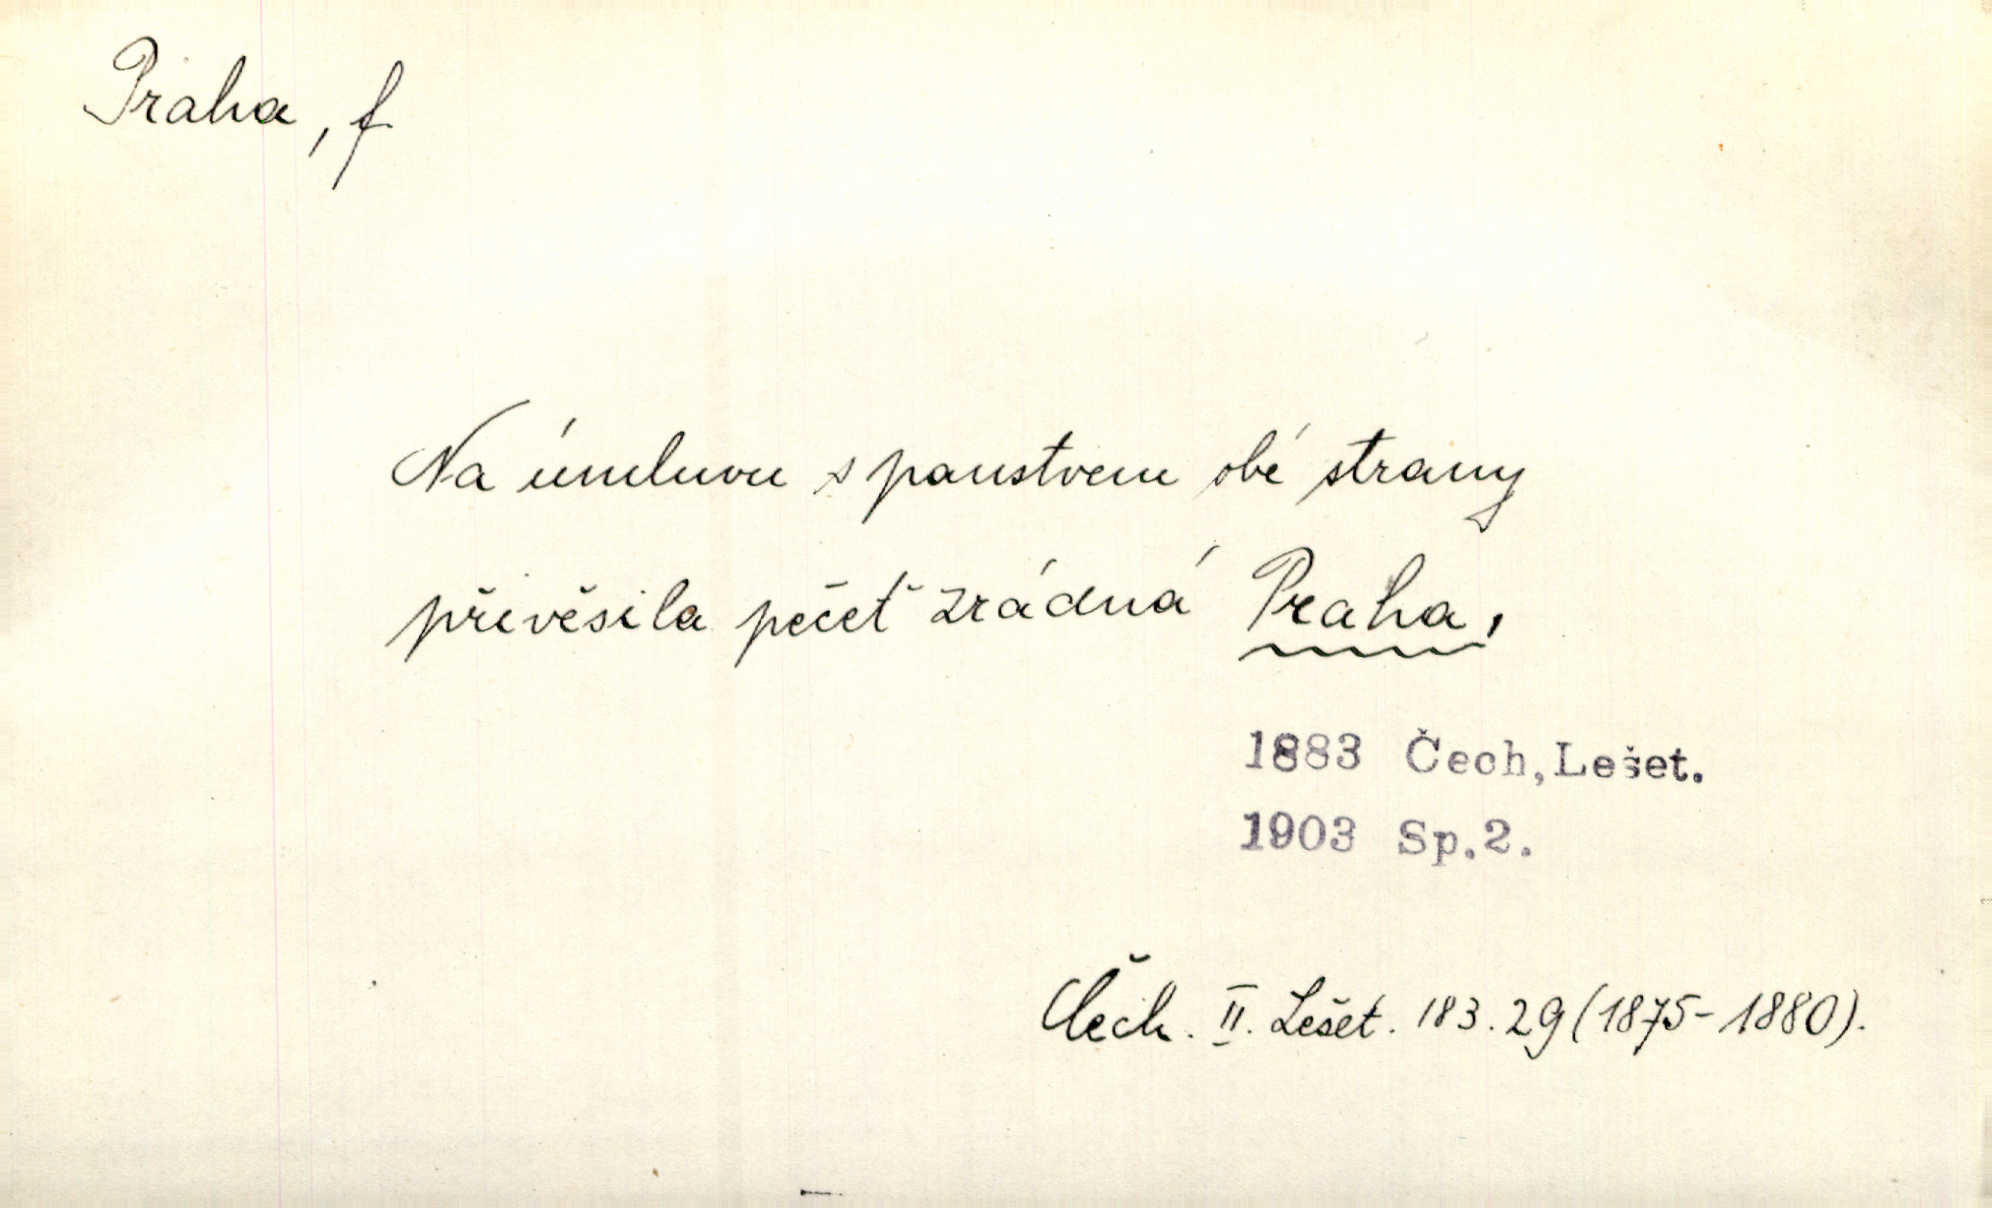 Praha, f
Na úmluvu s panstvem obé strany
přivěsila pečeť zrádná Praha,
1883 Čech, Lešet.
1903 Sp.2.
Čech. II. Lešet. 183.29 (1875-1880).